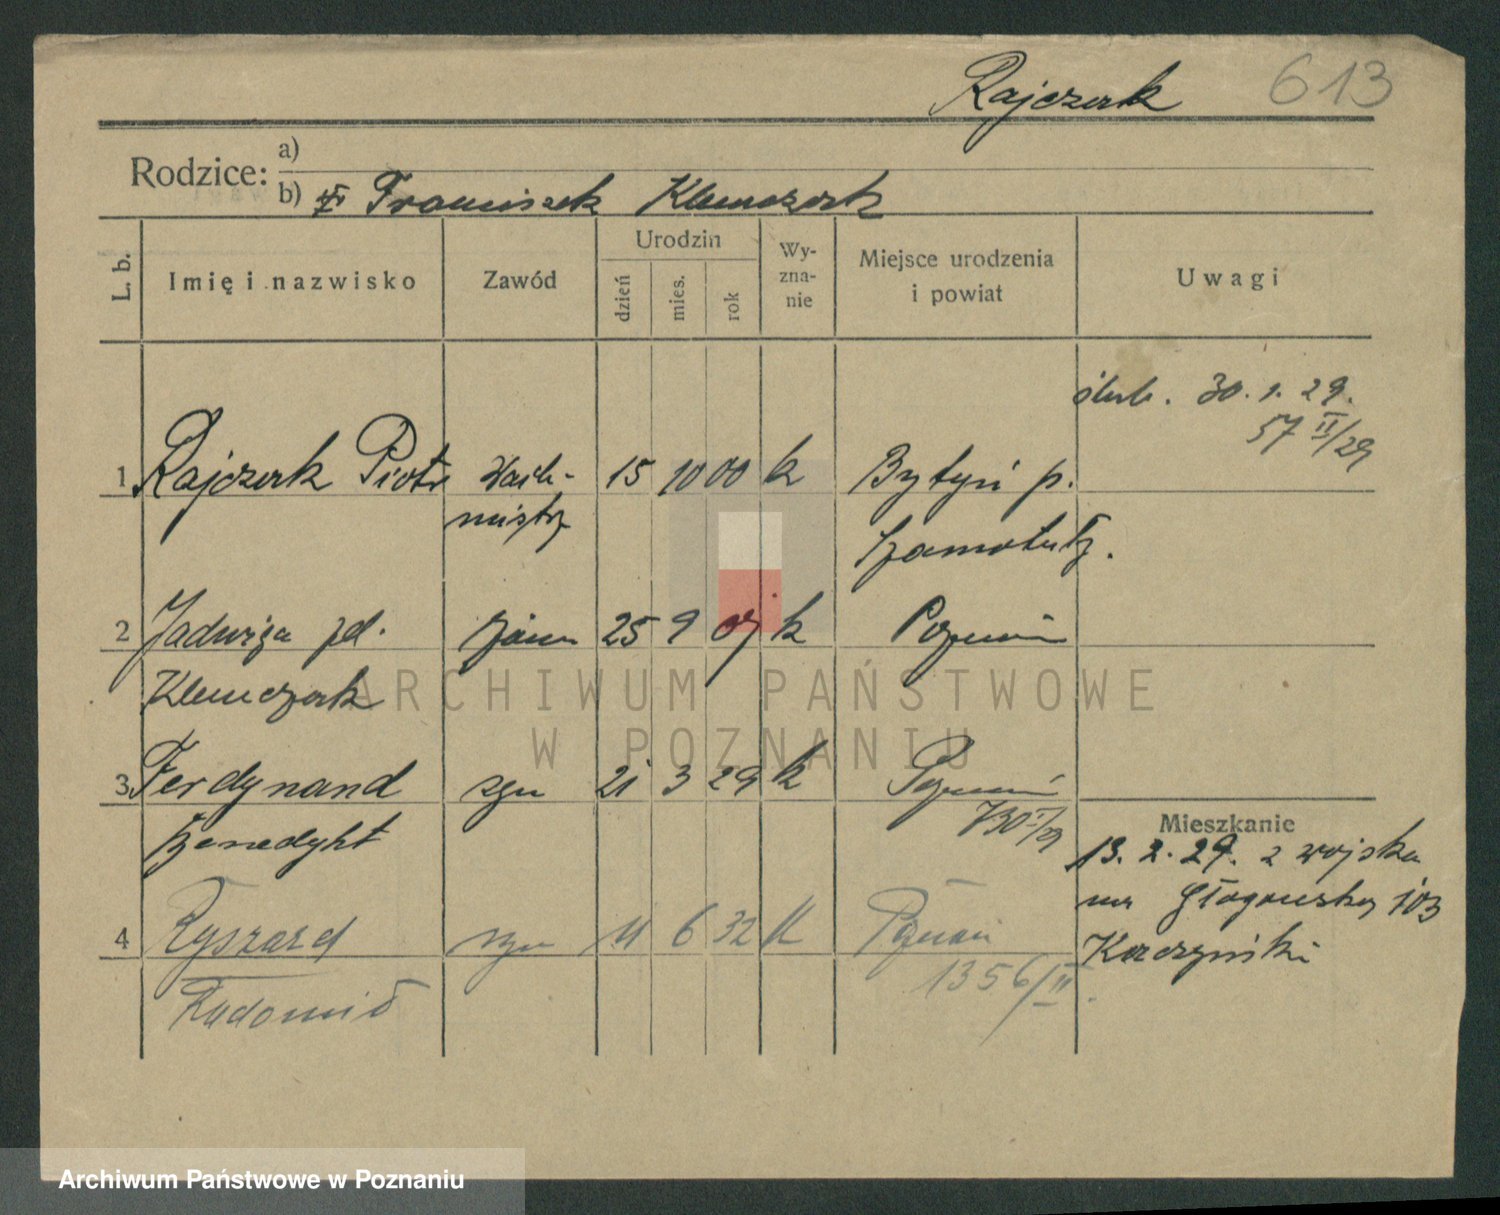 Rajczak 613
Rodzice: a)
b) Franciszek Klemczak
L. b.
Imię i nazwisko
Zawód
Urodzin
dzień
mies.
rok
Wy-
zna-
nie
Miejsce urodzenia
i powiat
Uwagi
ślub. 30. 1. 29.
57 II/29
1 Rajczak Piotr Wach- 15 10 00 k Bytyń p.
mistrz Szamotuły.
2 Jadwiga zd. żona 25 9 07 k Poznań
Klemczak
3 Ferdynand syn 21 3 29 k Poznań
Benedykt 730 I/29
Mieszkanie
13. 2. 29. z wojska
na Głogowską 103
4 Ryszard syn 11 6 32 k Poznań
Korczyński
Radomił 1356/II
ARCHIWUM PAŃSTWOWE
W POZNANIU
Archiwum Państwowe w Poznaniu